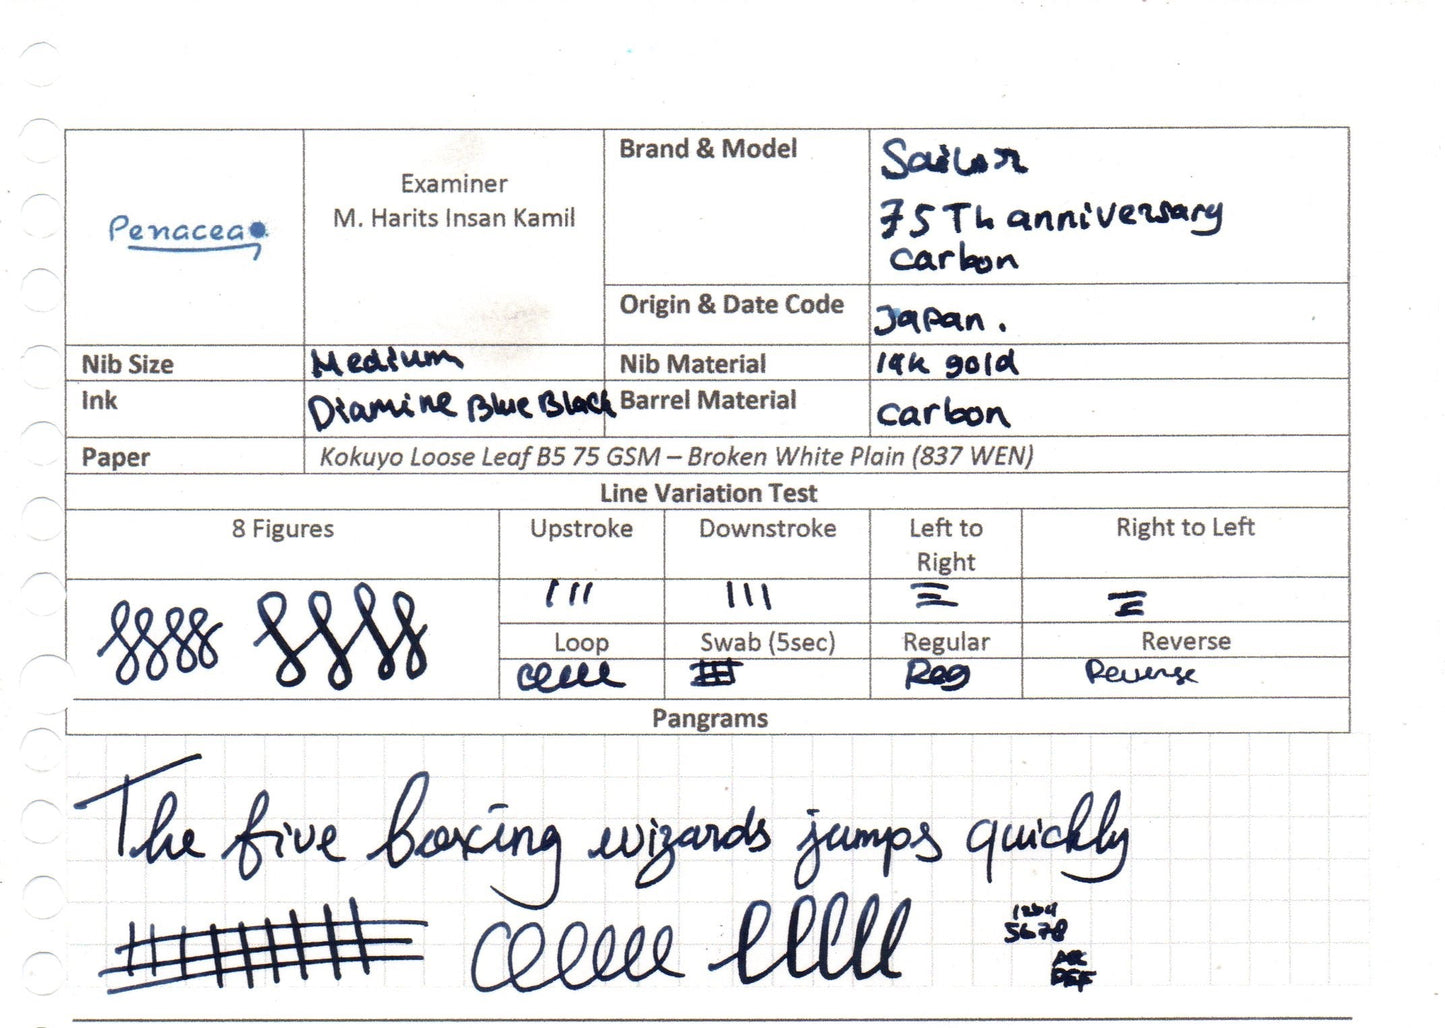 Penacea
Examiner
M. Harits Insan Kamil
Brand & Model
Sailor
75Th anniversary
carbon
Origin & Date Code
Japan.
Nib Size
Medium
Nib Material
14k gold
Ink
Diamine Blue Black
Barrel Material
carbon
Paper
Kokuyo Loose Leaf B5 75 GSM – Broken White Plain (837 WEN)
Line Variation Test
8 Figures
Upstroke
Downstroke
Left to
Right
Right to Left
Loop
Swab (5sec)
Regular
Reverse
Reg
Reverse
Pangrams
The five boxing wizards jumps quickly
1234
5678
ABC
DEF